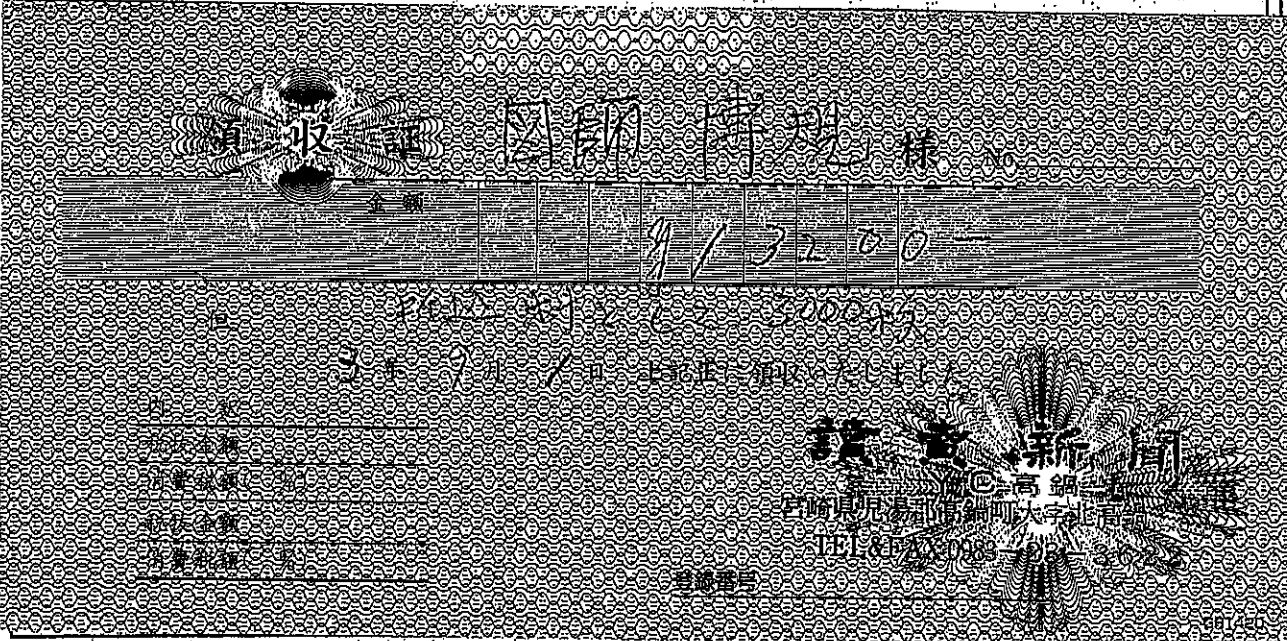 領収証 図師 博規 様 No.
金額
¥13200-
但 折込料として 3000枚
3年 9月 1日 上記正に領収いたしました
内訳
税抜金額
消費税額( %)
税抜金額
消費税額( %)
讀賣新聞
高鍋
宮崎県児湯郡高鍋町大字北高鍋
TEL&FAX 0983
登録番号